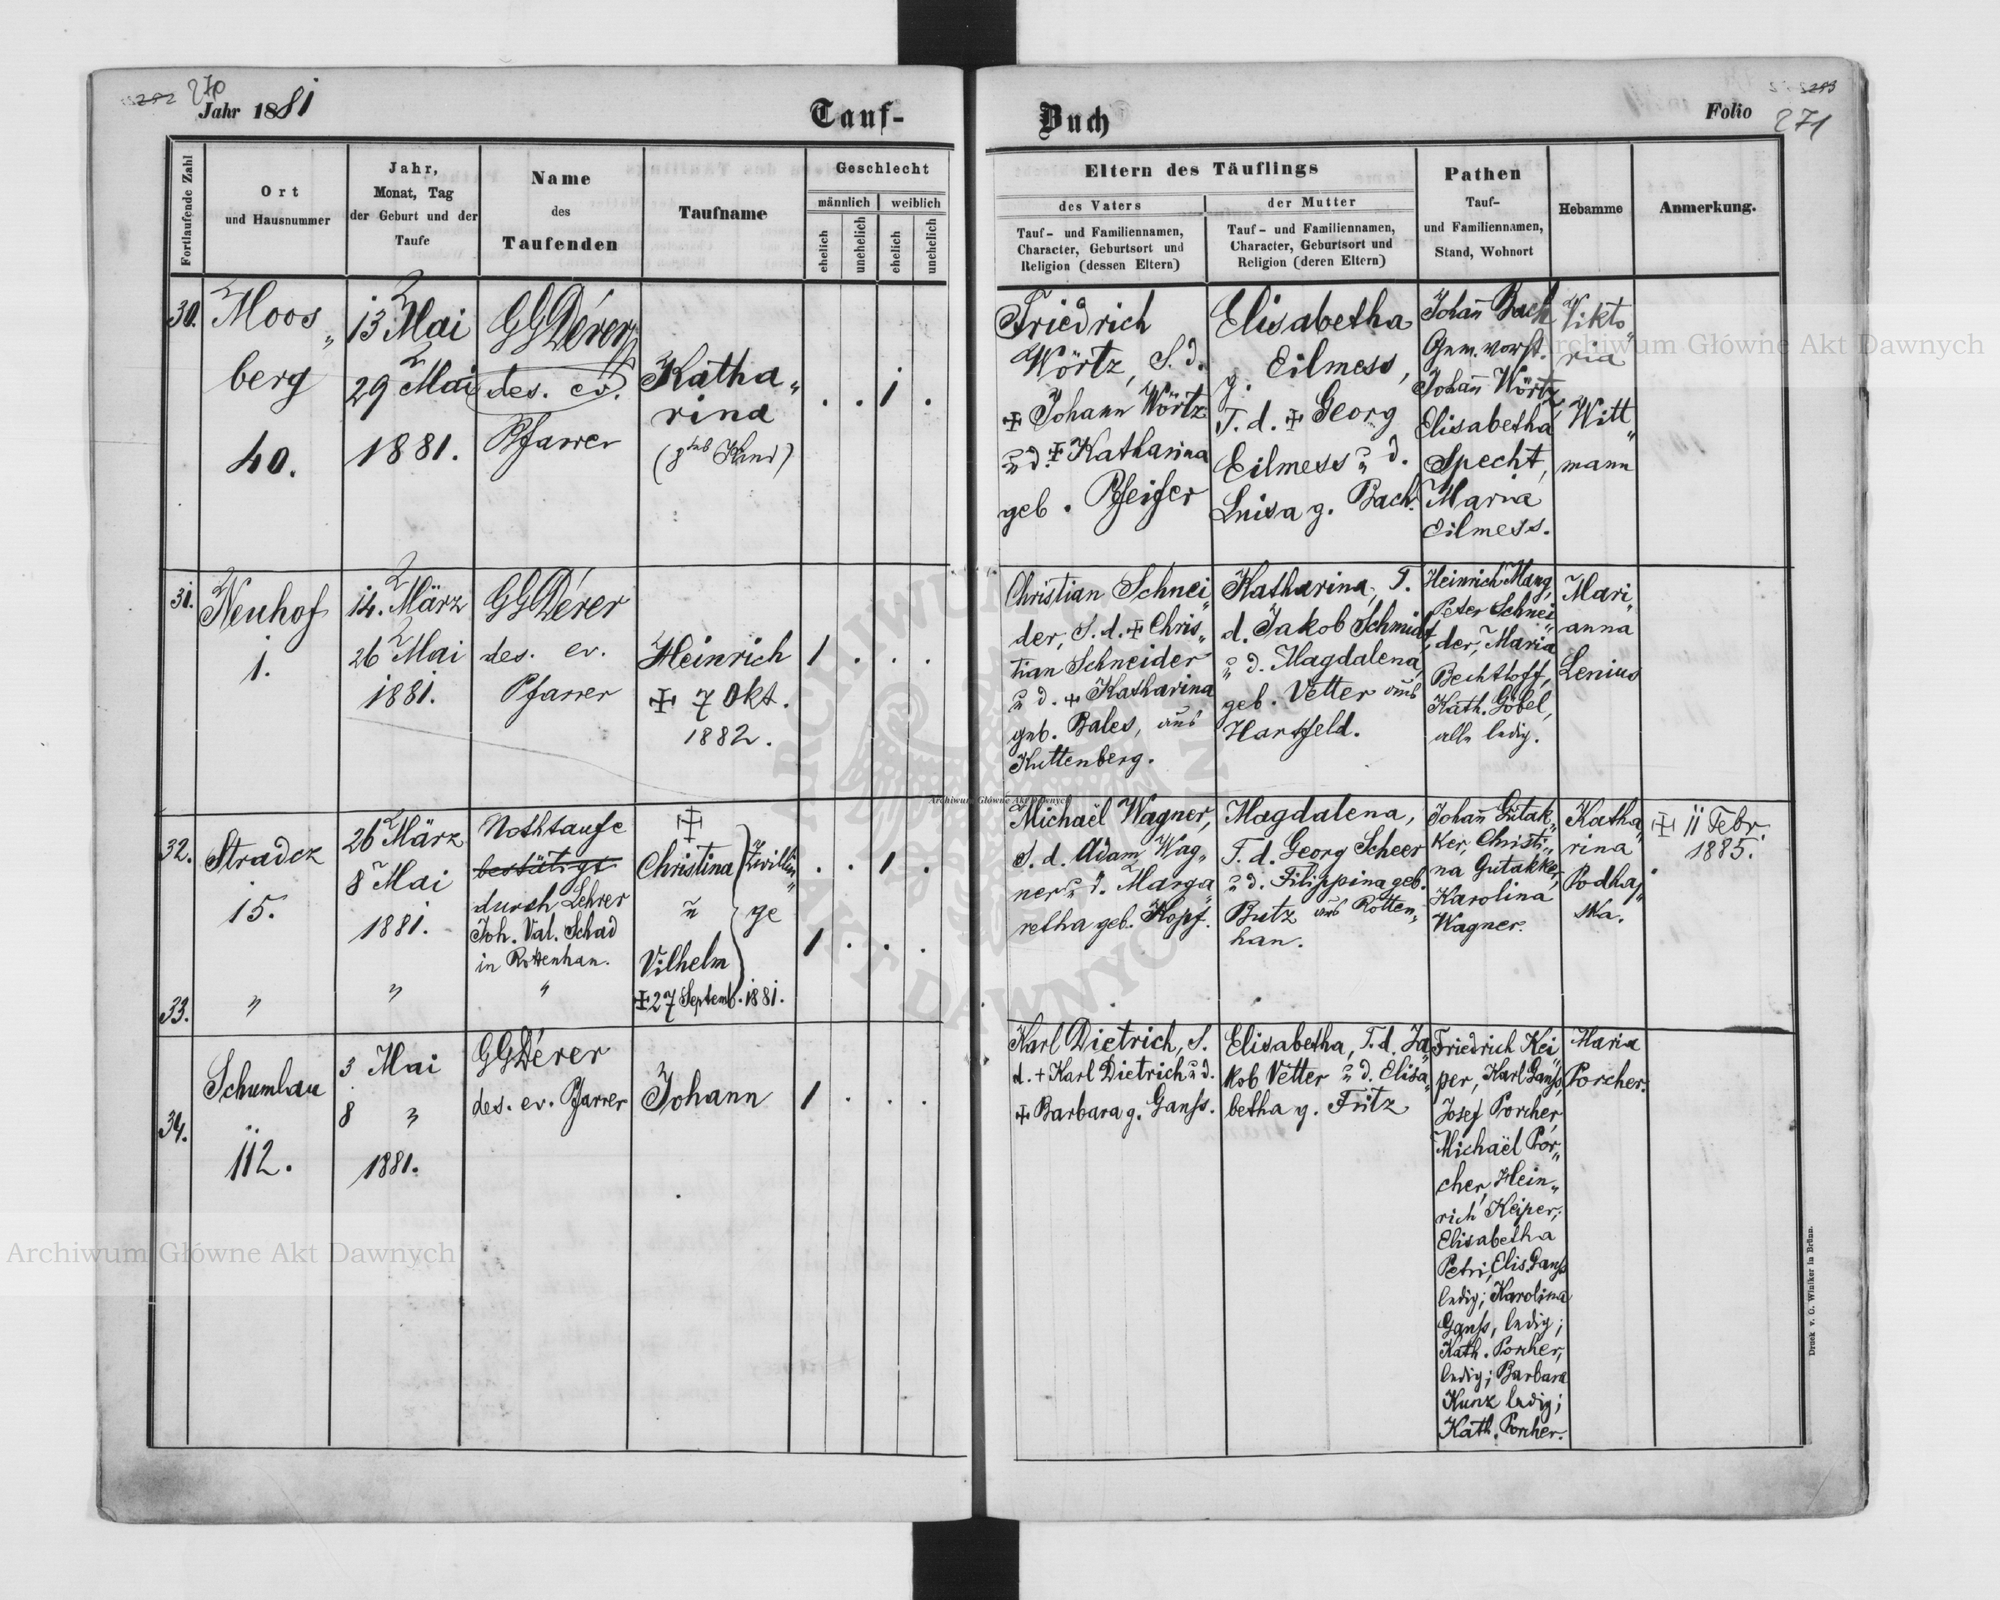 270
Jahr 1881
Tauf-
Buch
Folio
271
Fortlaufende Zahl
Ort
und Hausnummer
Jahr,
Monat, Tag
der Geburt und der
Taufe
Name
des
Taufenden
Taufname
Geschlecht
männlich
weiblich
ehelich
unehelich
ehelich
unehelich
Eltern des Täuflings
des Vaters
der Mutter
Tauf- und Familiennamen,
Character, Geburtsort und
Religion (dessen Eltern)
Tauf- und Familiennamen,
Character, Geburtsort und
Religion (deren Eltern)
Pathen
Tauf-
und Familiennamen,
Stand, Wohnort
Hebamme
Anmerkung.
30.
Moos„
berg
40.
13 Mai
29 Mai
1881.
GGDérer
des. ev.
Pfarrer
Katha„
rina
(8tes Kind)
. . 1 .
Friedrich
Wörtz, S. d.
+ Johann Wörtz
u d. + Katharina
geb. Pfeifer
Elisabetha
g. Eilmess,
T. d. + Georg
Eilmess u d.
Luisa g. Bach.
Johan̄ Bach
Gem. vorst.
Johan̄ Wörtz,
Elisabetha
Specht,
Maria
Eilmess.
Vikto„
ria
Witt„
mann
31.
Neuhof
1.
14. März
26 Mai
1881.
GGDérer
des. ev.
Pfarrer
Heinrich
+ 7 Okt.
1882.
1 . . .
Christian Schnei„
der, S. d. + Chris„
tian Schneider
u d. + Katharina
geb. Bales, aus
Kuttenberg.
Katharina, T.
d. Jakob Schmidt
u d. Magdalena,
geb. Vetter aus
Hartfeld.
Heinrich Mang,
Peter Schnei„
der, Maria
Bechtloff,
Kath. Göbel,
alle ledig.
Mari„
anna
Lenius
32.
Stradcz
15.
26 März
8 Mai
1881.
Nothtaufe
bestätigt
durch Lehrer
Joh. Val. Schad
in Rottenhan.
+
Christina
u
Vilhelm
+ 27 Septemb. 1881.
Zwillin„
ge
. . 1 .
1 . . .
Michaël Wagner,
S. d. Adam Wag„
ner u d. Marga„
retha geb. Kopf.
Magdalena,
T. d. Georg Scheer
u d. Filippina geb.
Butz aus Rotten„
han.
Johan̄ Gutak„
ker, Christi„
na Gutakker,
Karolina
Wagner.
Katha„
rina
Podha„
ska.
+ 11 Febr.
1885.
33.
„
„
„
34.
Schumlau
112.
3 Mai
8 „
1881.
GGDérer
des. ev. Pfarrer
Johann
1 . . .
Karl Dietrich, S.
d. + Karl Dietrich u d.
+ Barbara g. Ganss.
Elisabetha, T. d. Ja„
kob Vetter u d. Elisa„
betha g. Fritz
Friedrich Kei„
per, Karl Ganss,
Josef Porcher,
Michaël Por„
cher, Hein„
rich Keiper;
Elisabetha
Petri, Elis. Ganss
ledig; Karolina
Ganss, ledig;
Kath. Porcher,
ledig; Barbara
Kunz ledig;
Kath. Porcher.
Maria
Porcher.
Druck v. G. Winiker in Brünn.
Archiwum Główne Akt Dawnych
Archiwum Główne Akt Dawnych
Archiwum Główne Akt Dawnych
ARCHIWUM
AKT DAWNYCH